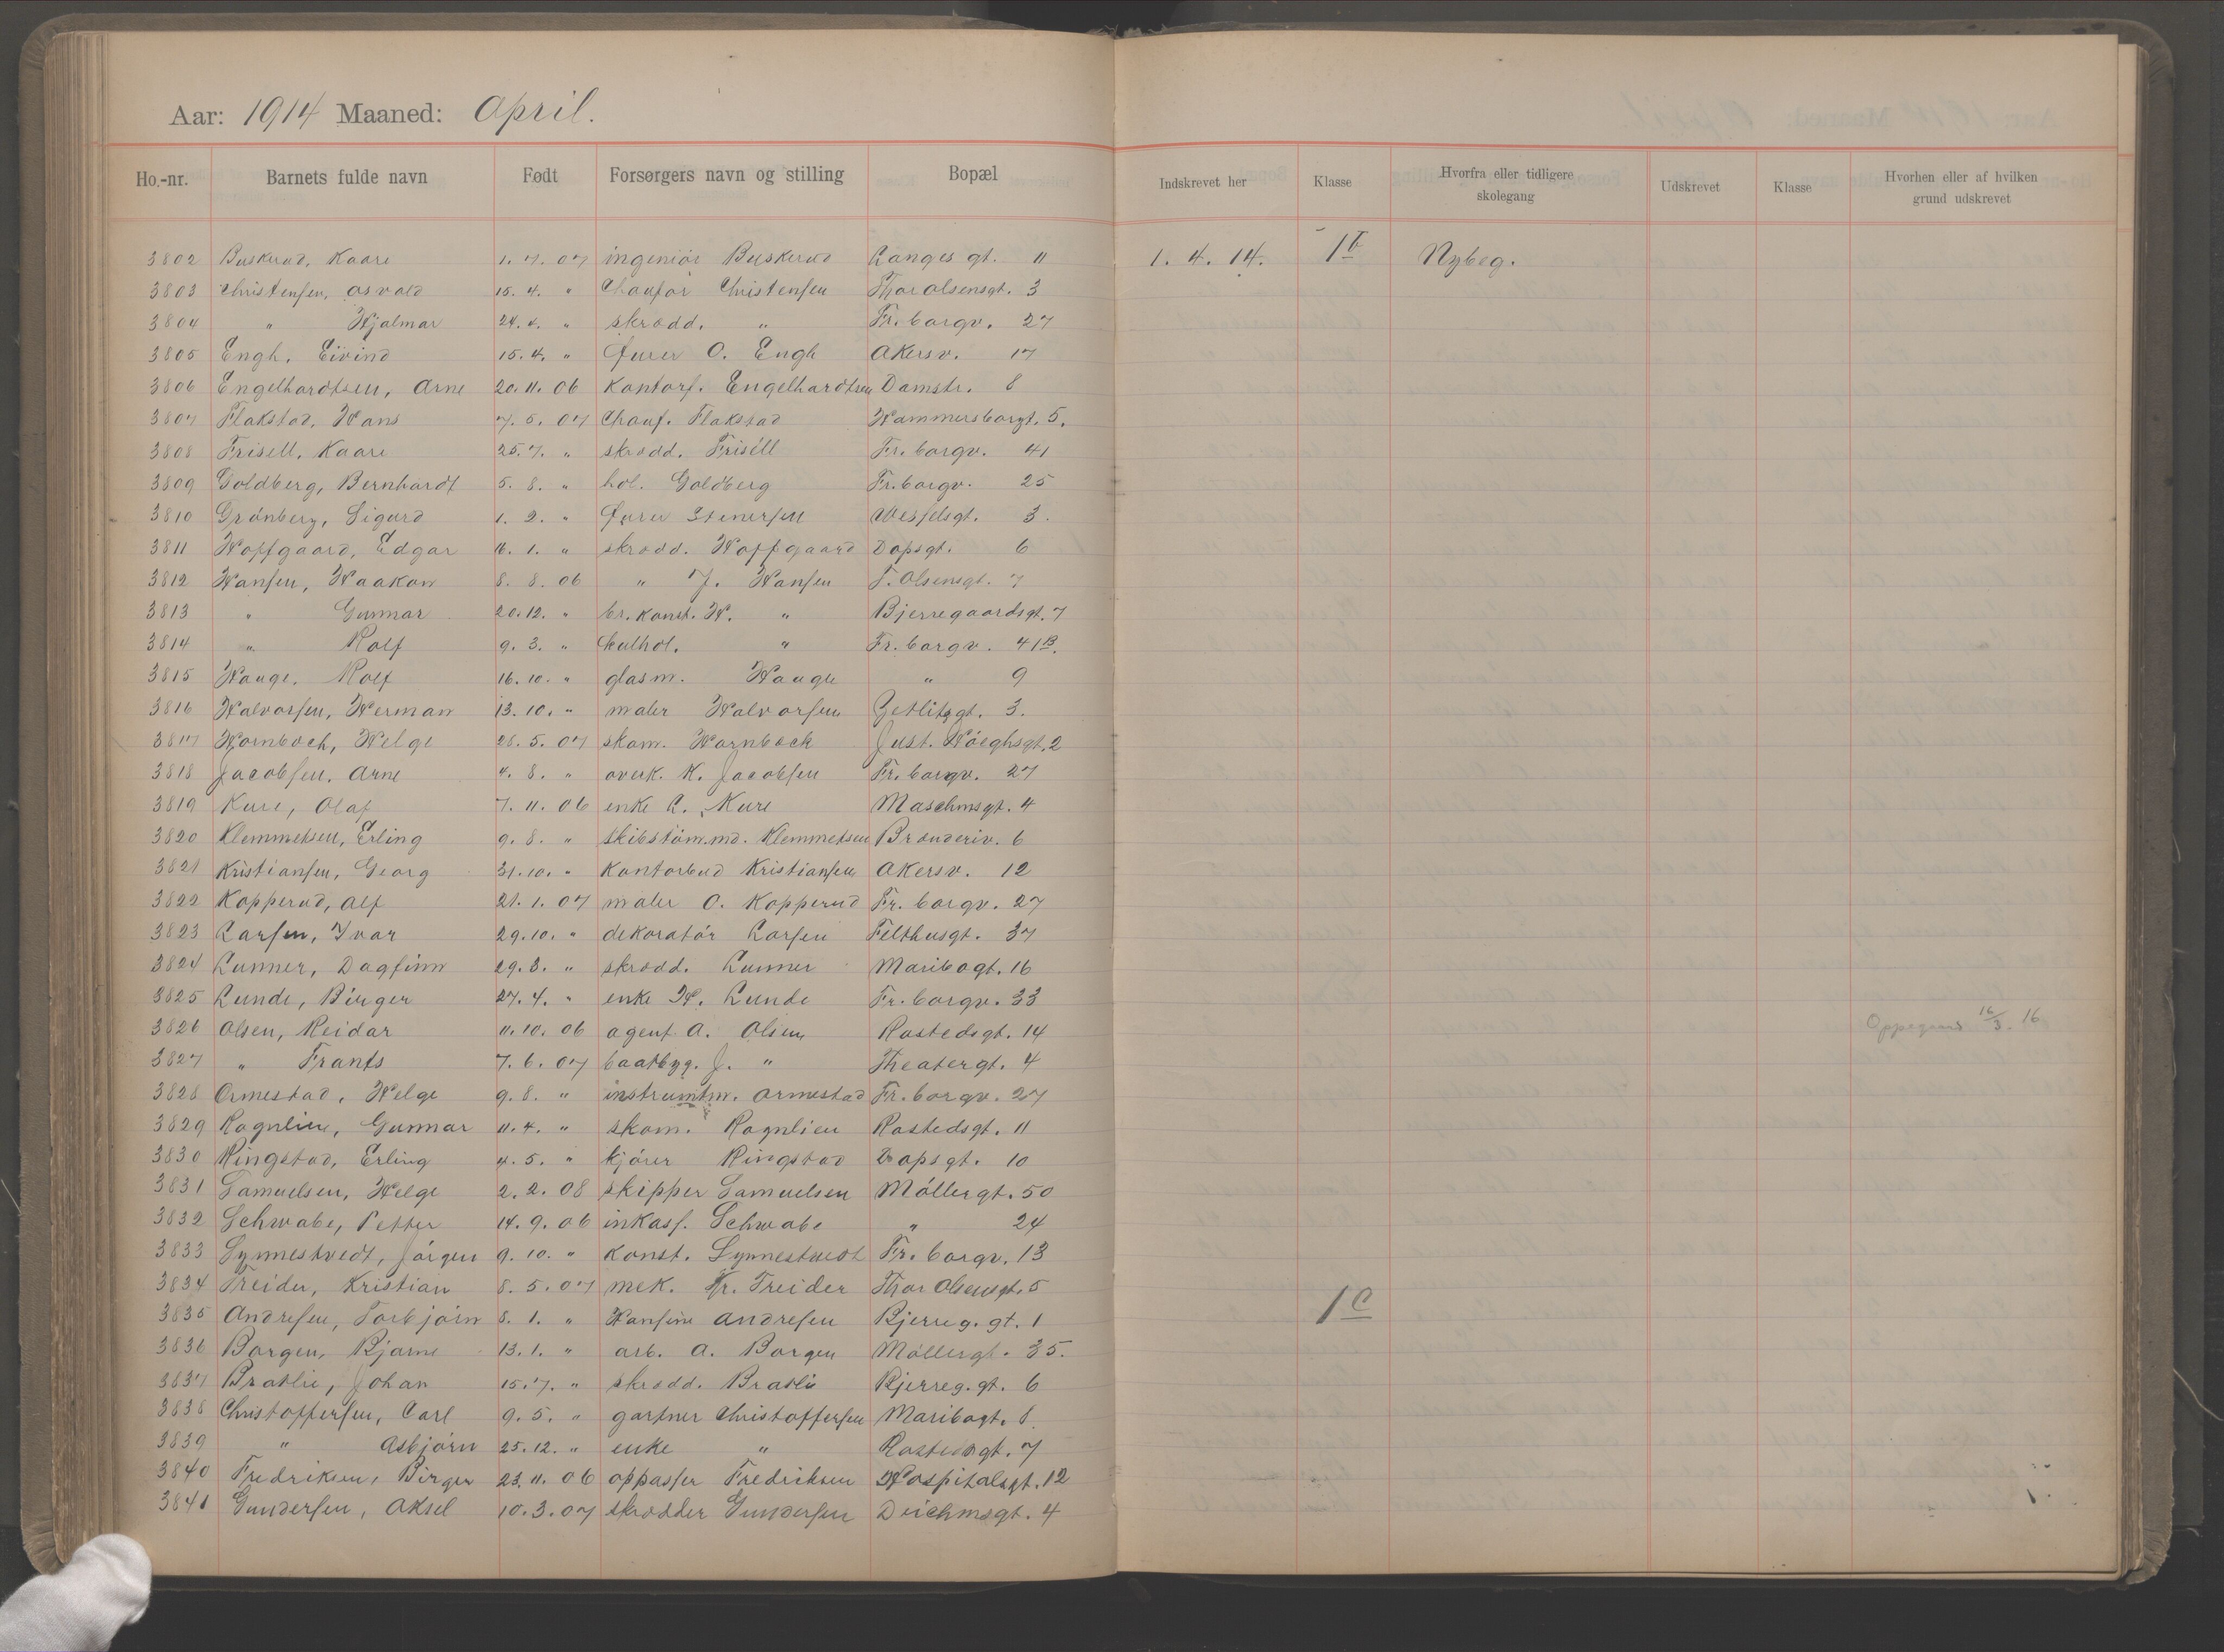 Aar: 1914 Maaned: April.
Ho.-nr. Barnets fulde navn Født Forsørgers navn og stilling Bopæl Indskrevet her Klasse Hvorfra eller tidligere skolegang Udskrevet Klasse Hvorhen eller af hvilken grund udskrevet
3802 Buskerud, Kaare 1. 7. 07 ingeniör Buskerud Langes gt. 11 1. 4. 14. 1b Nybeg.
3803 Christensen, Osvald 15. 4. " Chauför Christensen Thor Olsensgt. 3
3804 " Hjalmar 24. 4. " skrædd. " Fr.borgv. 27
3805 Engh, Eivind 15. 4. " furer O. Engh Akersv. 17
3806 Engelhardtsen, Arne 20. 11. 06 Kontorf. Engelhardtsen Damstr. 8
3807 Flakstad, Hans 7. 5. 07 Chauf. Flakstad Hammersborgt. 5.
3808 Frisell, Kaare 25. 7. " skrædd. Frisell Fr.borgv. 41
3809 Goldberg, Bernhardt 5. 8. " hol. Goldberg Fr.borgv. 25
3810 Grönberg, Sigurd 1. 2. " furer Stenersen Wesselsgt. 3.
3811 Hopfgaard, Edgar 16. 1. " skrædd. Hopfgaard Dopsgt. 6
3812 Hansen, Haakon 8. 8. 06 " J. Hansen T. Olsensgt. 7
3813 " Gunnar 20. 12. " br.konst. H. " Bjerregaardsgt. 7
3814 " Rolf 9. 3. " kulhdl. " Fr.borgv. 41B.
3815 Hauge, Rolf 16. 10. " glasm. Hauge " 9
3816 Halvorsen, Herman 13. 10. " maler Halvorsen Zetlitzgt. 3.
3817 Hornboch, Helge 28. 5. 07 skom. Hornbock Just. Höeghsgt. 2
3818 Jacobsen, Arne 4. 8. " overk. K. Jacobsen Fr.borgv. 27
3819 Kure, Olaf 7. 11. 06 enke L. Kure Maschmsgt. 4
3820 Klemmetsen, Erling 9. 8. " skibstöm.md. Klemmetsen Brænderiv. 6
3821 Kristiansen, Georg 31. 10. " Kontorbud Kristiansen Akersv. 12
3822 Kopperud, Alf 21. 1. 07 maler O. Kopperud Fr.borgv. 27
3823 Larsen, Ivar 29. 10. " dekoratör Larsen Filthusgt. 37
3824 Lunner, Dagfinn 29. 3. " skrædd. Lunner Maribogt. 16
3825 Lunde, Birger 27. 4. " enke H. Lunde Fr.borgv. 33
3826 Olsen, Reidar 11. 10. 06 agent A. Olsen Rostedsgt. 14 Oppegaard 16/3. 16
3827 " Frants 7. 6. 07 baatbyg. J. " Theatergt. 4
3828 Ormestad, Helge 9. 8. " instrumtm. Ormestad Fr.borgv. 27
3829 Rognlien, Gunnar 11. 4. " skom. Rognlien Rostedsgt. 11
3830 Ringstad, Erling 4. 5. " kjörer Ringstad Dopsgt. 10
3831 Samuelsen, Helge 2. 2. 08 skipper Samuelsen Möllergt. 50
3832 Schwabe, Petter 14. 9. 06 inkass. Schwabe " 24
3833 Synnestvedt, Jörgen 9. 10. " konst. Synnestvedt Fr.borgv. 13
3834 Treider, Kristian 8. 5. 07 mek. Kr. Treider Thor Olsensgt. 5
3835 Andresen, Torbjörn 8. 1. " Hansine Andresen Bjerreg.gt. 1 1c
3836 Borgen, Bjarne 13. 1. " arb. A. Borgen Möllergt. 35.
3837 Bratlie, Johan 15. 7. " skrædd. Bratlie Bjerreg.gt. 6
3838 Christoffersen, Carl 9. 5. " gartner Christoffersen Maribogt. 8
3839 " Asbjörn 25. 12. " enke " Rostedsgt. 7
3840 Fredriksen, Birger 23. 11. 06 oppasser Fredriksen Hospitalsgt. 12
3841 Gundersen, Aksel 10. 3. 07 skrædder Gundersen Deichmsgt. 4